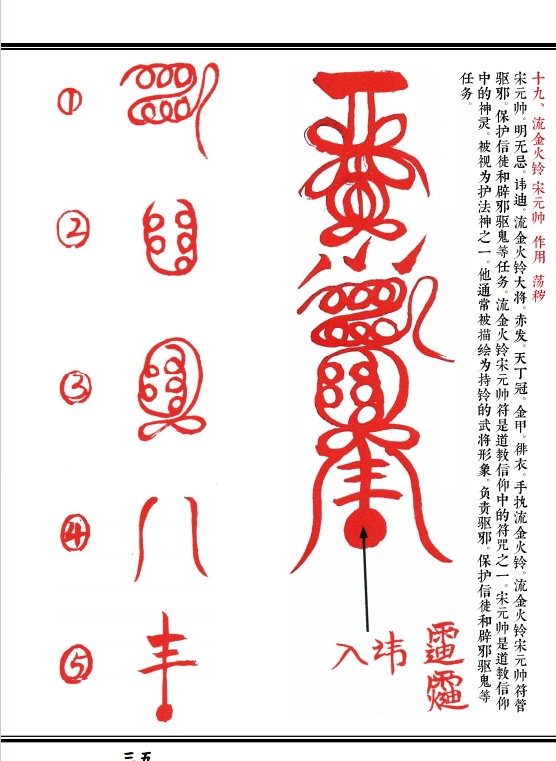 十九、流金火铃 宋元帅 作用 荡秽
宋元帅。明无忌。讳迪。流金火铃大将。赤发。天丁冠。金甲。绯衣。手执流金火铃。流金火铃宋元帅符管
驱邪。保护信徒和辟邪驱鬼等任务。流金火铃宋元帅符是道教信仰中的符咒之一。宋元帅是道教信仰
中的神灵。被视为护法神之一。他通常被描绘为持铃的武将形象。负责驱邪。保护信徒和辟邪驱鬼等
任务。
①
②
③
④
⑤
入讳
三五